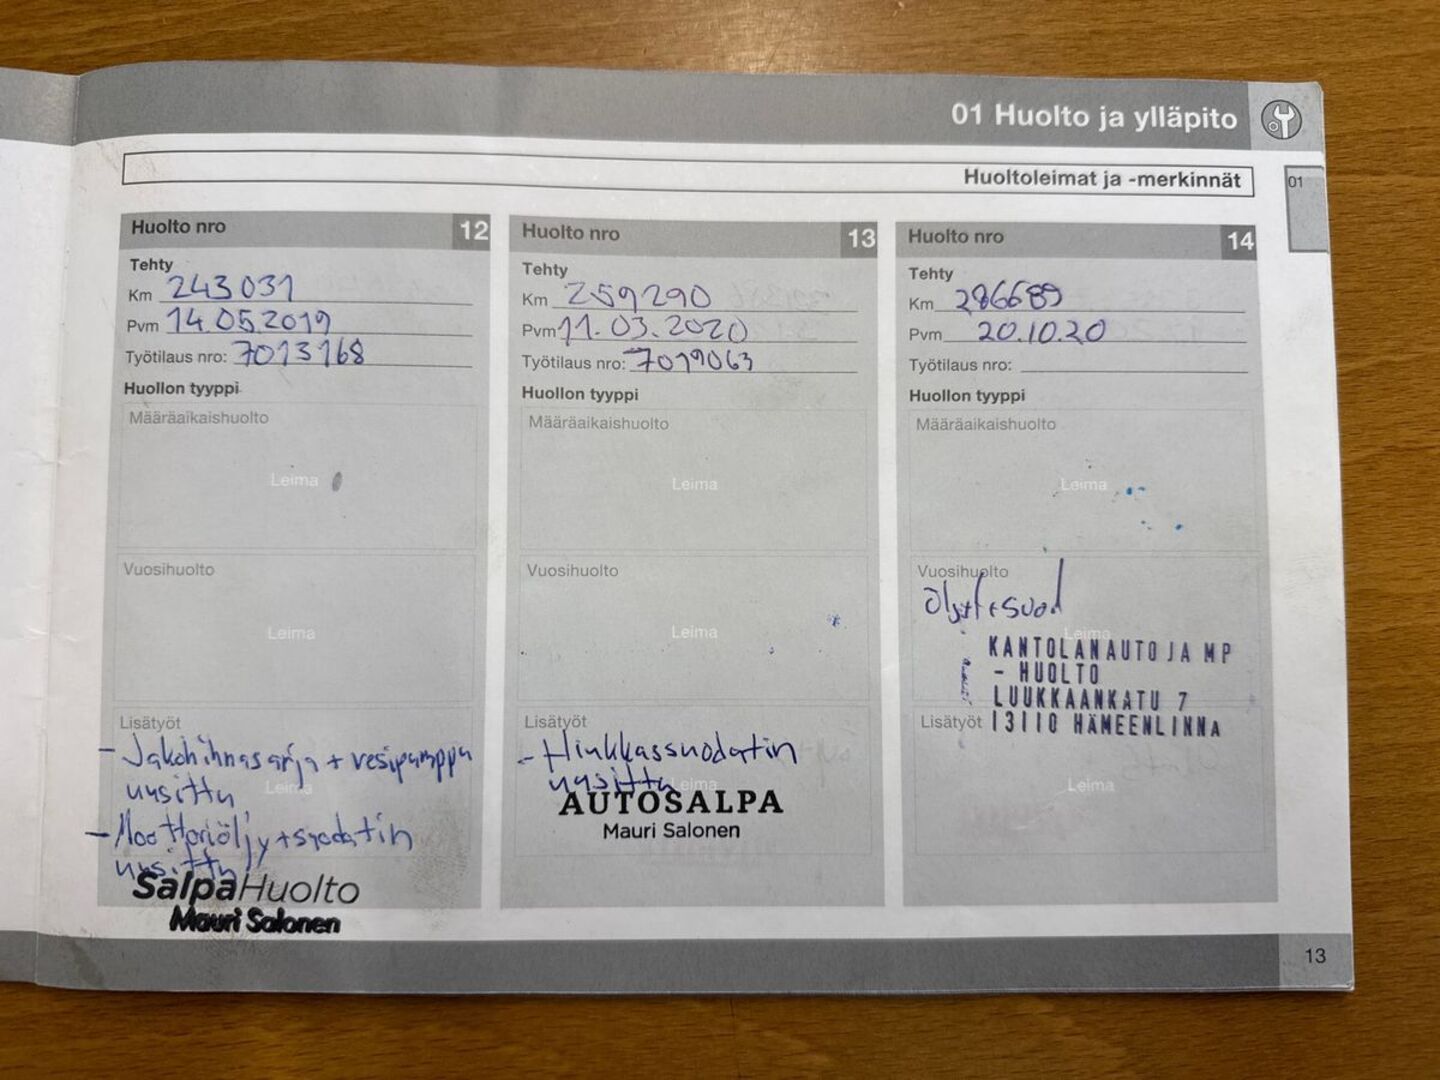 01 Huolto ja ylläpito
Huoltoleimat ja -merkinnät
01
Huolto nro 12
Tehty
Km 243031
Pvm 14.05.2019
Työtilaus nro: 7013168
Huollon tyyppi
Määräaikaishuolto
Leima
Vuosihuolto
Leima
Lisätyöt
- Jakohihnasarja + vesipumppu
uusittu
Leima
- Moottoriöljy + suodatin
uusittu
SalpaHuolto
Mauri Salonen
Huolto nro 13
Tehty
Km 259290
Pvm 11.03.2020
Työtilaus nro: 7019063
Huollon tyyppi
Määräaikaishuolto
Leima
Vuosihuolto
Leima
Lisätyöt
- Hiukkassuodatin
uusittu
Leima
AUTOSALPA
Mauri Salonen
Huolto nro 14
Tehty
Km 286689
Pvm 20.10.20
Työtilaus nro:
Huollon tyyppi
Määräaikaishuolto
Leima
Vuosihuolto
Leima
KANTOLANAUTO JA MP
- HUOLTO
LUUKKAANKATU 7
13110 HÄMEENLINNA
Lisätyöt
Leima
13